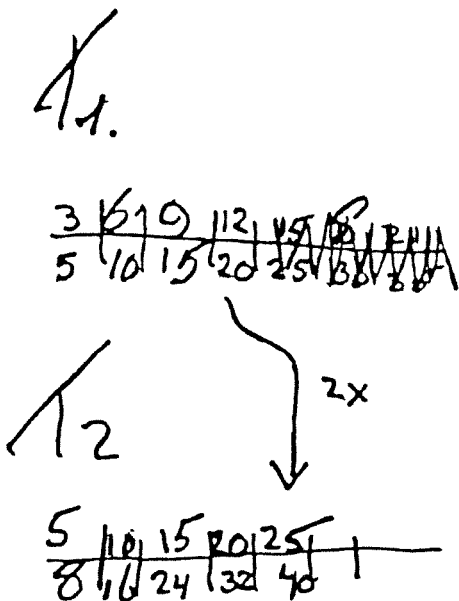 1.
3 | 6 | 9 | 12
5 | 10 | 15 | 20 | 25
2x
2
5 | 10 | 15 | 20 | 25
8 | 16 | 24 | 32 | 40